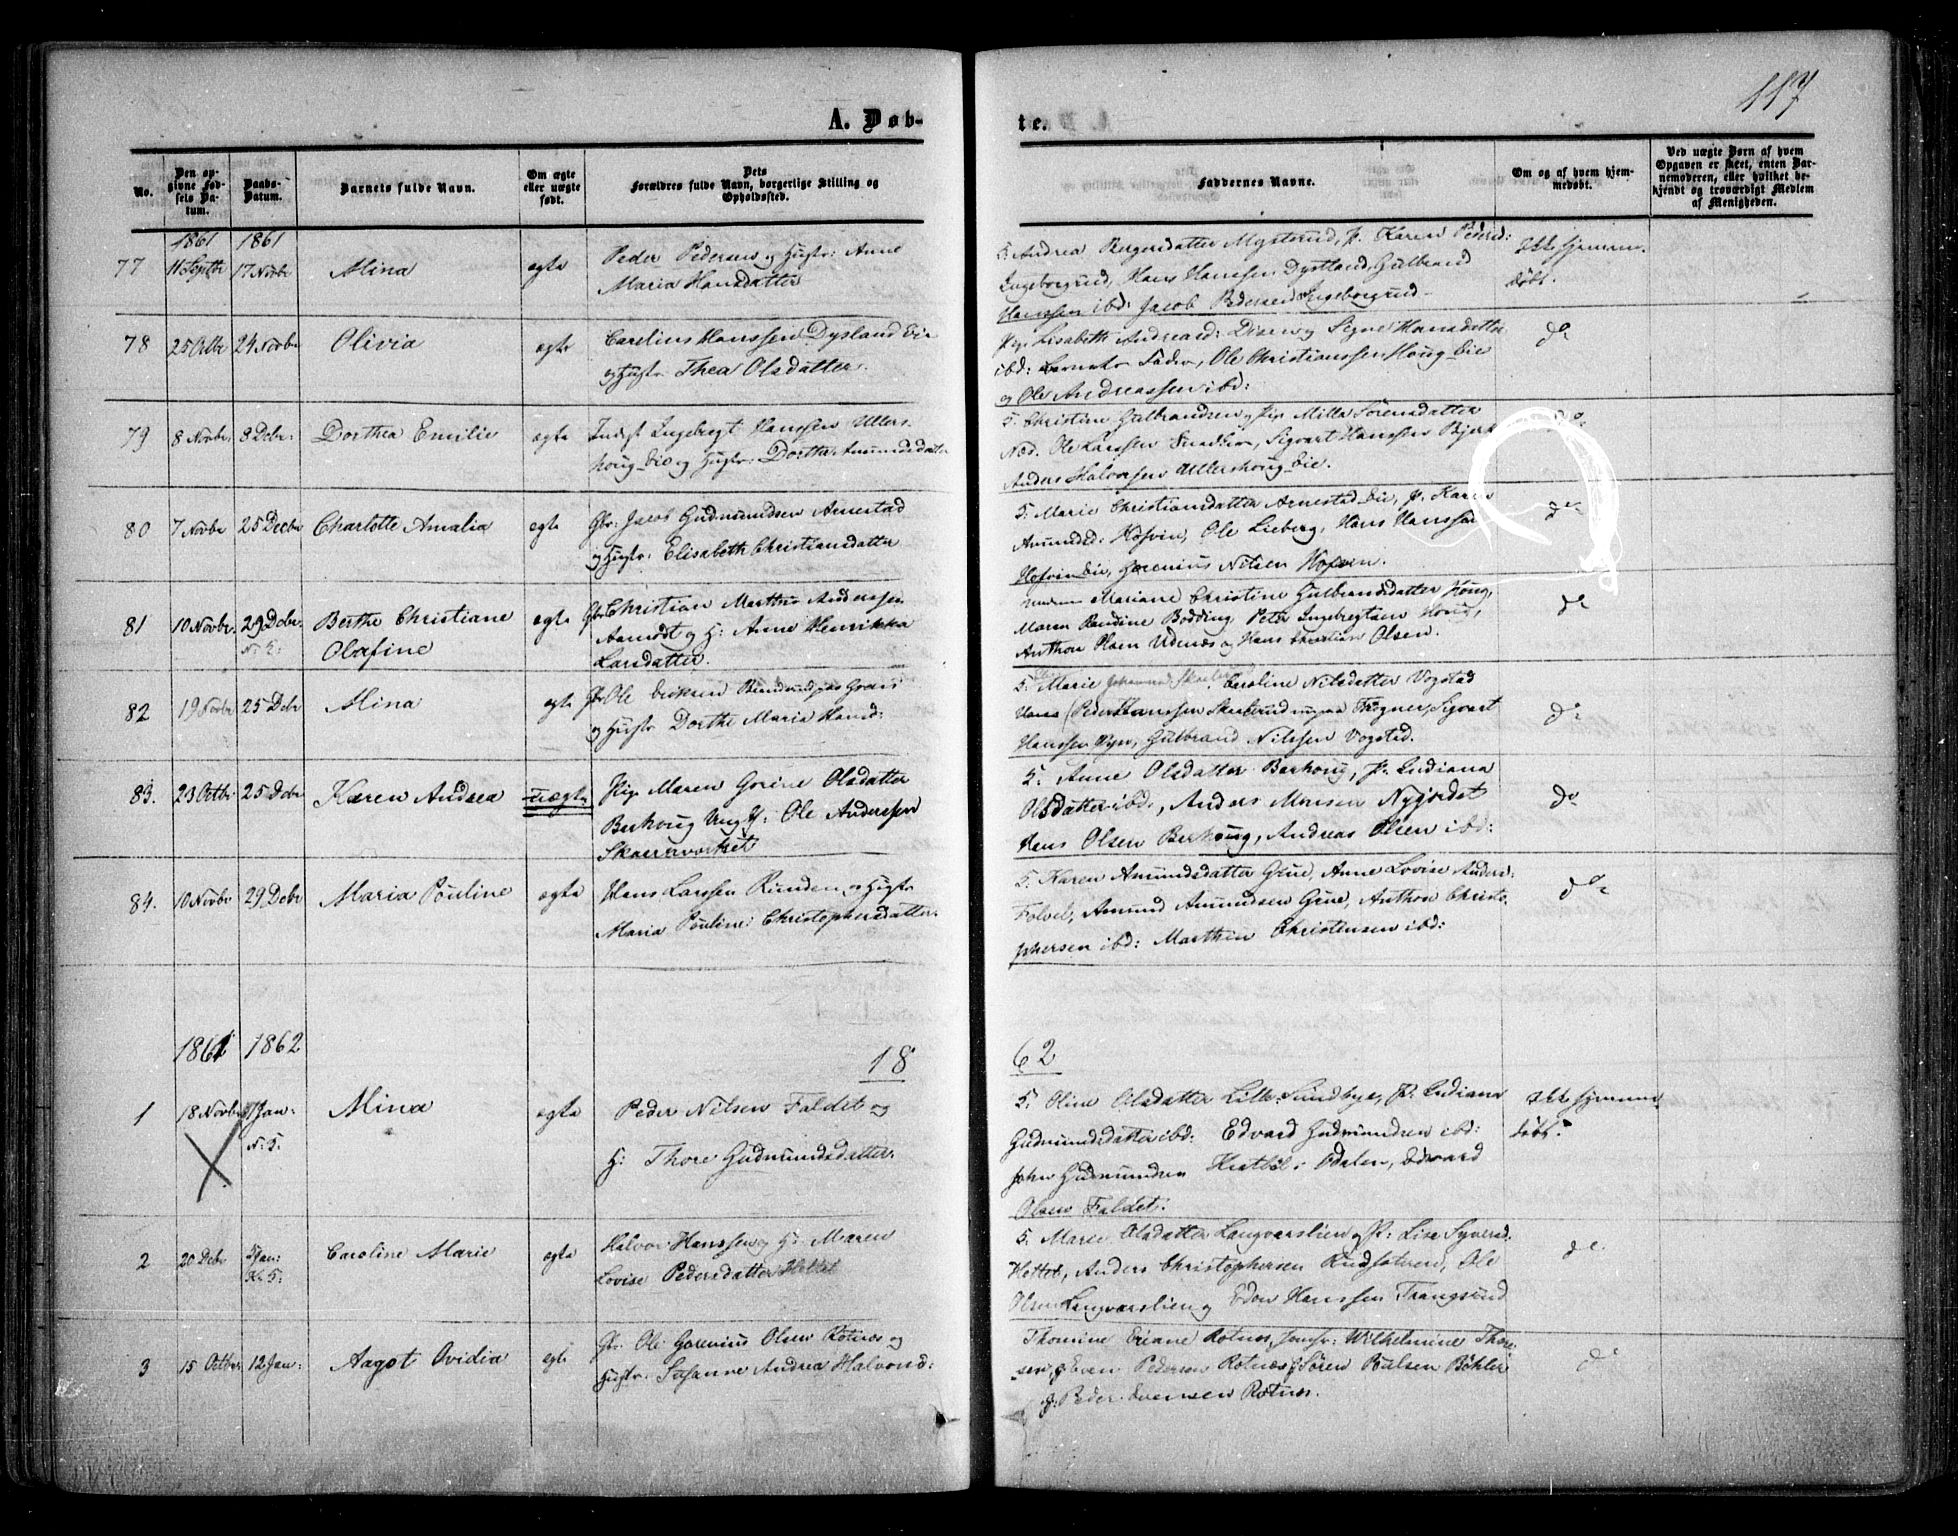 117
A. Døb-
te.
No.
Den op-
givne Fød-
sels Da-
tum.
Daabs-
Datum.
Barnets fulde Navn.
Om ægte
eller uægte
født.
Dets
Forældres fulde Navn, borgerlige Stilling og
Opholdssted.
Faddernes Navne.
Om og af hvem hjem-
medøbt.
Ved uægte Børn af hvem
Opgaven er skeet, enten Bar-
nemoderen, eller hvilket be-
kjendt og troværdigt Medlem
af Menigheden.
1861 1861
77 11 Septbr 17 Novbr Mina ægte Peder Pedersen og Hustr: Anne
Maria Hansdatter
Andrea Bergersdatter Mysterud, P. Karen Pedersd:
Ingeborgrud, Hans Hanssen Dystland, Gulbrand
Hanssen ibd: Jacob Pedersen Ingeborgrud
Ikke hjemme-
døbt.
78 25 Octbr 24 Novbr Olivia ægte Carelius Hanssen Dysland Eie
og Hustr Thea Olsdatter.
Lisabeth Andreasd: og Signe Hansdatter
ibd: Barnets Fader, Ole Christianssen Houg Eie
og Ole Andreassen ibd:
do
79 8 Novbr. 8 Decbr: Dorthea Emilie ægte Indst Ingebregt Hanssen Ullers-
houg Eie og Hustr: Dorthe Amundsdatter
Christine Gulbrandsen Milla Sørensdatter
Ole Larssen Sigvart Hanssen Bjerk
Anders Halvorsen Ullershoug Eie.
do
80 7 Novbr 25 Decbr Charlotte Amalia ægte Gbr: Jacob Gudmundsen Arnestad
og Hustr: Elisabeth Christiansdatter
Marie Christiansdatter Arnestad Eie, P. Karen
Amundsd: Hofvin, Ole Lieberg, Hans Hanssen
Hofvin Eie, Gorenius Nilsen Hofvin.
do
81 10 Novbr. 29 Decbr. Berthe Christiane
Olafine
ægte Gbr Christian Marthus Anderssen
og H: Anne Henrikka
Larsdatter.
Mariane Christine Gulbrandsdatter Houg,
Maren Randine Bodding, Peter Ingebregtsen Houg,
Anthon Olsen Udnæs og Hans Olsen.
do
82 19 Novbr 25 Decbr Mina ægte Gbr Ole Eriksen
og Hustr Dorthe Maria Hansd:
Marie Johanne Caroline Nilsdatter Vogstad
Peder Hanssen Frogner, Sigvart
Hanssen Gulbrand Nilssen Vogstad.
do
83. 23 Octbr 25 Decbr Karen Andrea uægte Pige Maren Gorine Olsdatter
Berhoug Ungk: Ole Anderssen
Anne Olsdatter Berhoug, P. Ludiana
Olsdatter ibd., Anders Monsen Nygjordet
Hans Olsen Berhoug, Andreas Olsen ibd:
do
84. 10 Novbr 29 Decbr Maria Pouline ægte Hans Larssen Runden og Hustr
Maria Pouline Christophersdatter.
Karen Amundsdatter Grue, Anne Lovise Anders:
Amund Amundsen Grue, Anthon Christo-
phersen ibd: Marthin Christensen ibd:
do
1861 1862
18
62
1 18 Novbr Jan: Mina ægte Peder Nilsen Faldet og
H: Thore Gudmundsdatter.
Oline Olsdatter Lille-Sundbye, P: Ludiana
Gudmundsdatter ibd: Edvard Gudmundsen ibd:
John Gudmundsen Odalen, Edvard
Olsen Faldet.
Ikke hjemme-
døbt.
2 20 Decbr Jan: Caroline Marie ægte Halvor Hanssen og H: Maren
Lovise Pedersdatter Hettet
Marie Olsdatter Langvarslien og P: Lise Syversd:
Hettet, Anders Christophersen Ole
Olsen Langvarslien og Hanssen Trangsund
do
3 15 Octbr 12 Jan: Aagot Ovidia ægte Gbr Ole Gorenius Olsen Rotnes og
Hustr. Susanne Andrea Halvorsd:
Thomine Eriane Rotnes, Jomfr: Wilhelmine Thore-
sen, Even Pedersen Rotnæs, Søren Poulsen Bøhler
Peder Evensen Rotnes.
do